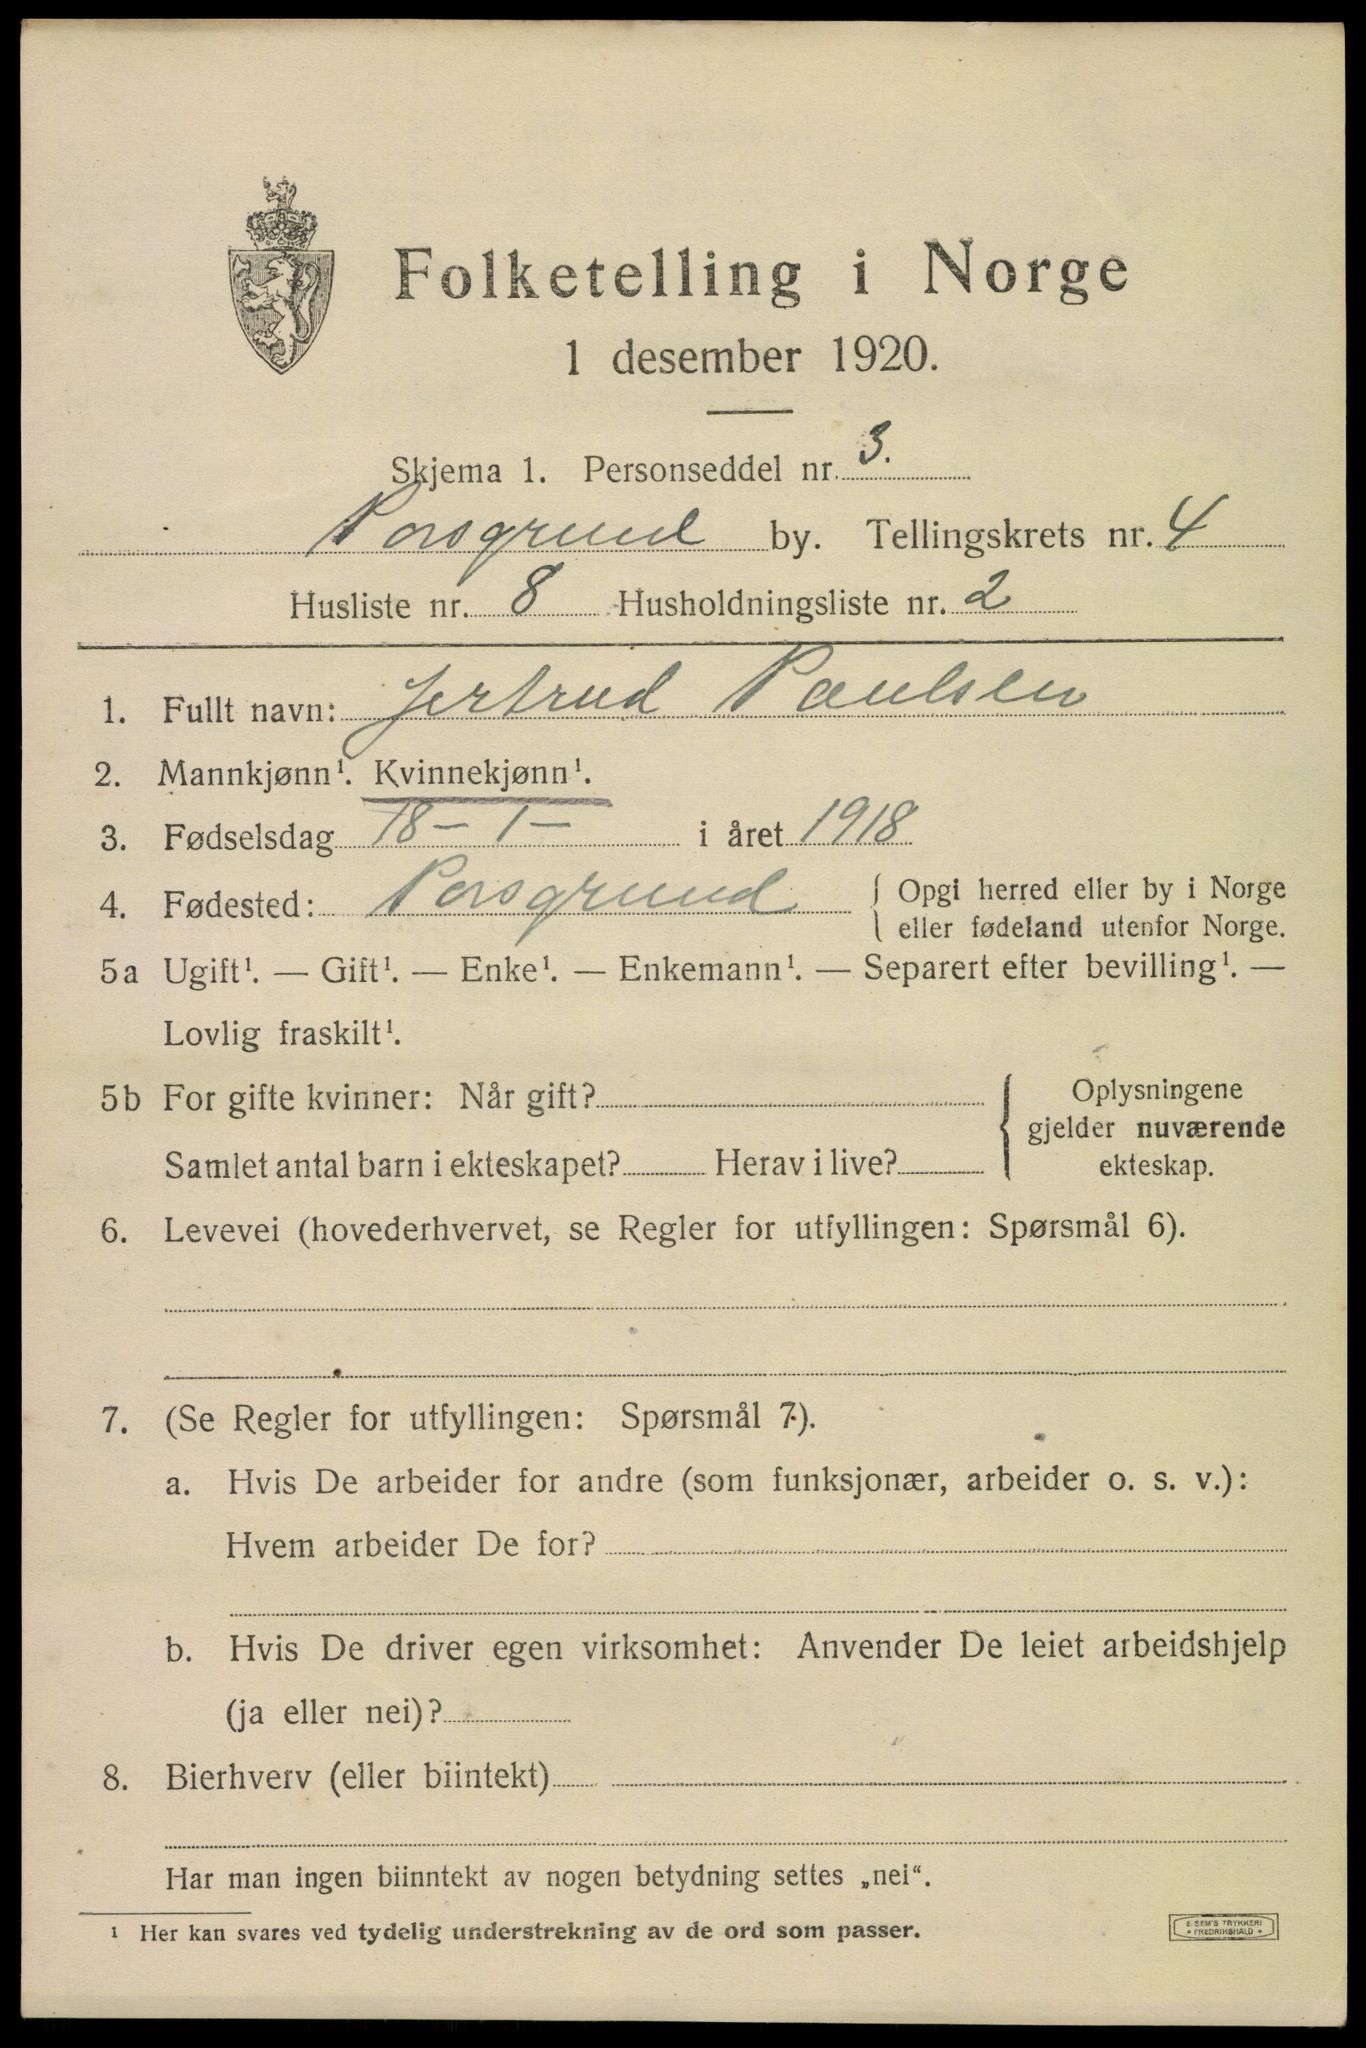 Folketelling i Norge
1 desember 1920.
Skjema 1. Personseddel nr. 3.
Porsgrund by. Tellingskrets nr. 4
Husliste nr. 8 Husholdningsliste nr. 2
1. Fullt navn: Jertrud Paulsen
2. Mannkjønn¹. Kvinnekjønn¹.
3. Fødselsdag 18 – 1 – i året 1918
4. Fødested: Porsgrund { Opgi herred eller by i Norge
eller fødeland utenfor Norge.
5a Ugift¹. — Gift¹. — Enke¹. — Enkemann¹. — Separert efter bevilling¹. —
Lovlig fraskilt¹.
5b For gifte kvinner: Når gift? { Oplysningene
gjelder nuværende
Samlet antal barn i ekteskapet? Herav i live? ekteskap.
6. Levevei (hovederhvervet, se Regler for utfyllingen: Spørsmål 6).
7. (Se Regler for utfyllingen: Spørsmål 7).
a. Hvis De arbeider for andre (som funksjonær, arbeider o. s. v.):
Hvem arbeider De for?
b. Hvis De driver egen virksomhet: Anvender De leiet arbeidshjelp
(ja eller nei)?
8. Bierhverv (eller biintekt)
Har man ingen biinntekt av nogen betydning settes „nei“.
¹ Her kan svares ved tydelig understrekning av de ord som passer.
E. SEM'S TRYKKERI
• FREDRIKSHALD •